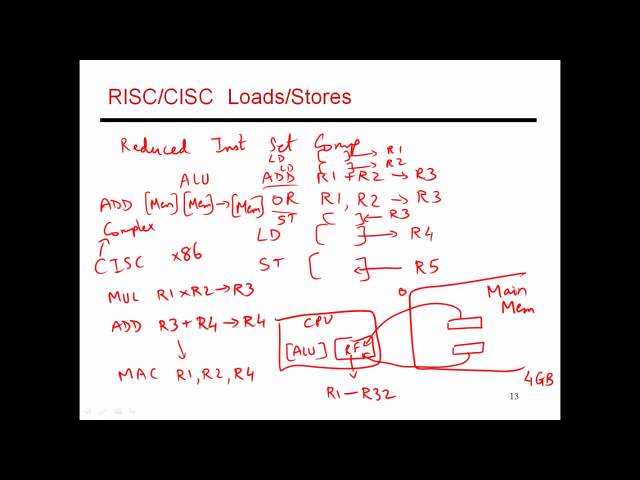 RISC/CISC Loads/Stores
Reduced Inst Set Comp
LD [ ] → R1
LD [ ] → R2
ALU ADD R1 + R2 → R3
ADD [Mem] [Mem] → [Mem] OR R1, R2 → R3
ST [ ] ← R3
Complex LD [ ] → R4
↑
CISC x86 ST [ ] ← R5
MUL R1 × R2 → R3
ADD R3 + R4 → R4
↓
MAC R1, R2, R4
CPU
[ALU] RF
R1 — R32
0
Main
Mem
4GB
13